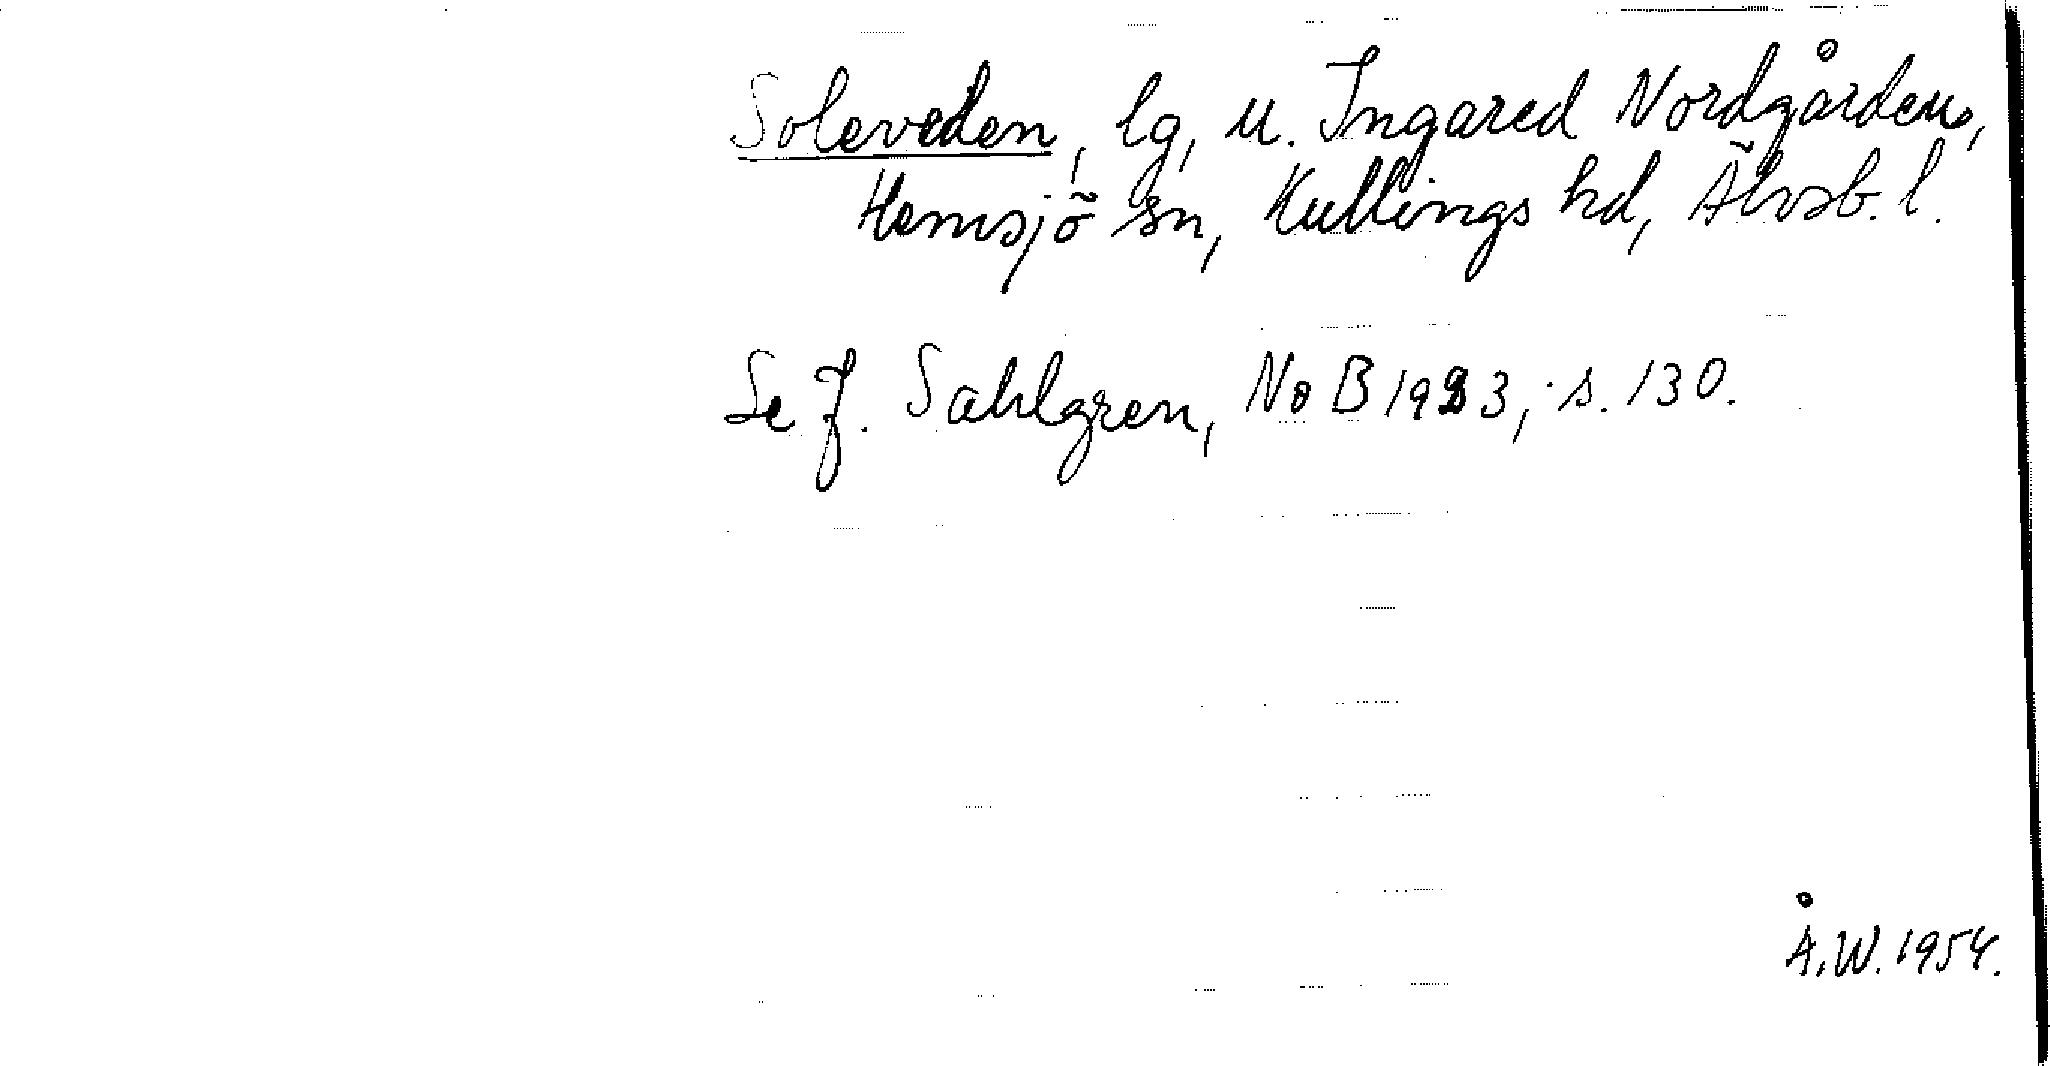 Soleveden, lg, u. Ingared Nordgården,
Hemsjö sn, Kullings hd, Älvsb. l.
Se J. Sahlgren, NoB 1923, s. 130.
Å.W. 1954.